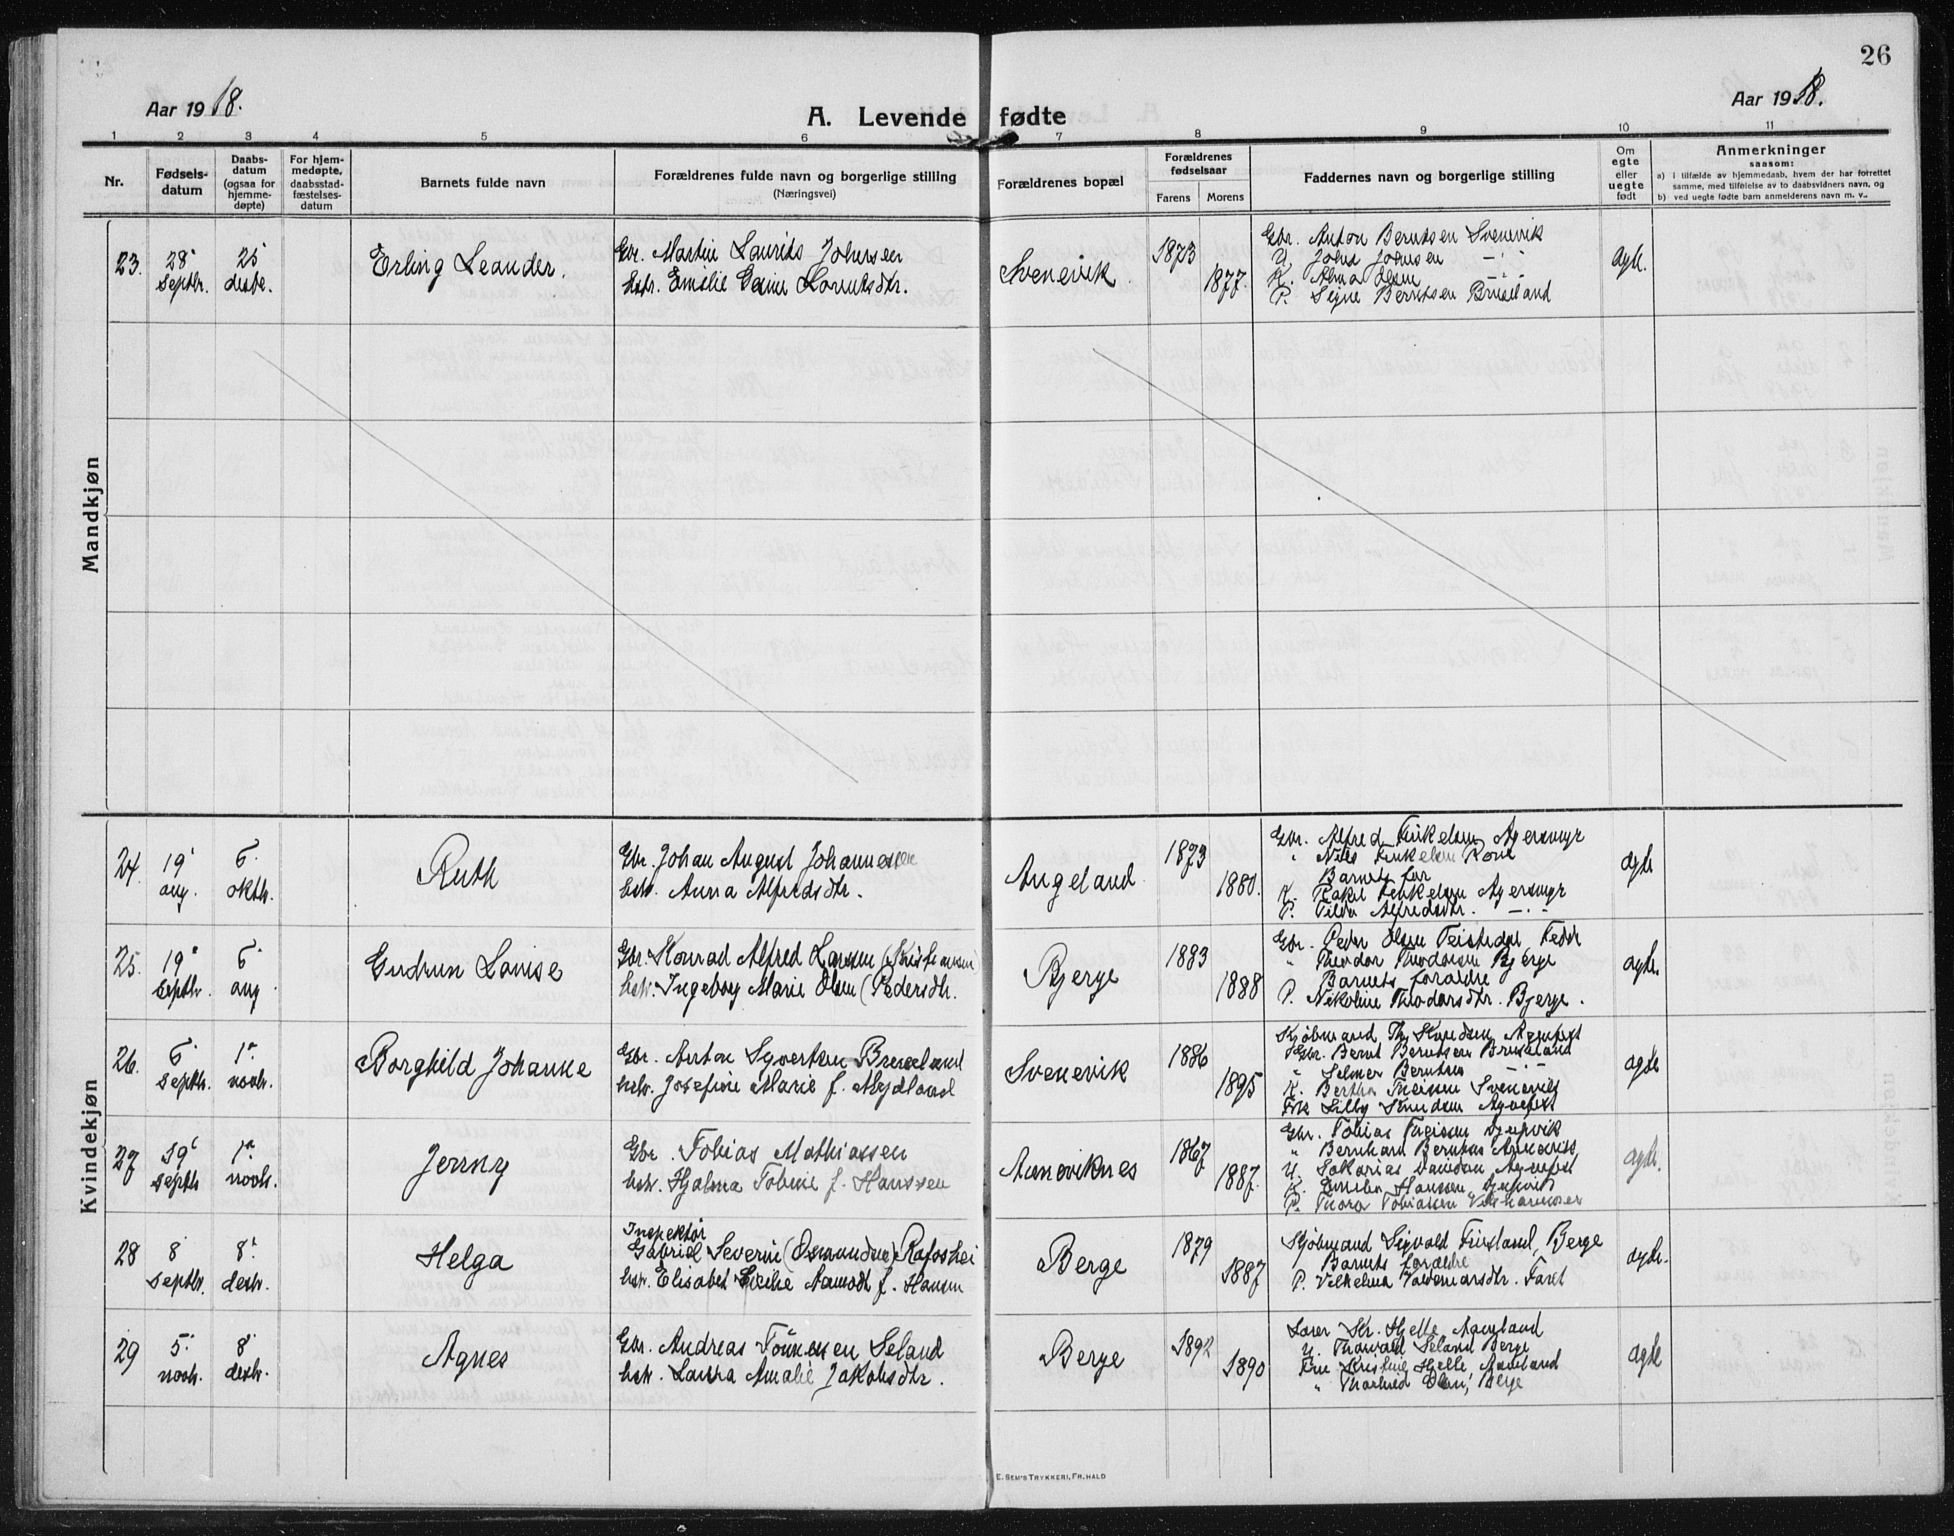 26
Aar 1918.
A. Levende fødte
Aar 1918.
1 2 3 4 5 6 7 8 9 10 11
Nr.
Fødsels-
datum
Daabs-
datum
(ogsaa for
hjemme-
døpte)
For hjem-
medøpte,
daabsstad-
fæstelses-
datum
Barnets fulde navn
Forældrenes fulde navn og borgerlige stilling
(Næringsvei)
Forældrenes bopæl
Forældrenes
fødselsaar
Farens Morens
Faddernes navn og borgerlige stilling
Om
egte
eller
uegte
født
Anmerkninger
saasom:
a) i tilfælde av hjemmedaab, hvem der har forrettet
samme, med tilføielse av to daabsvidners navn, og
b) ved uegte fødte barn anmelderens navn m. v..
Mandkjøn
23.
28
septbr.
25
desbr.
Erling Leander.
Gbr. Martin Laurits Johnsen
hstr. Emilie
Svenevik
1873
1877.
Gbr. Anton Berntsen Svenevik
U. John Johnsen — " —
K. Alma Olsen — " —
P. Signe Berntsen Bruseland
ægte.
Kvindekjøn
24.
19
aug.
6.
oktbr.
Ruth
Gbr. Johan August Johannessen
hstr. Anna Alfredsdtr.
Angeland
1873
1880.
Gbr. Alfred Terkelsen Agersmyr
" Nils Terkelsen
Barnets far
K. Rakel Terkelsen Agersmyr
P. Tilda Alfredsdtr. — " —
ægte
25.
19
septbr.
6.
aug
Gudrun Louise
Gbr. Konrad Alfred Larsen (Kristiansen)
hstr. Ingeborg Marie Olsen (Pedersdtr.
Bjerge
1883
1888
Gbr. Peder Olsen Teistedal,
" Theodor Theodorsen Bjerge
Barnets forældre
P. Nikoline Theodorsdtr. Bjerge.
ægte.
26.
6
septbr.
1.
novbr.
Borghild Johanne
Gbr. Anton Syvertsen Bruseland
hstr. Josefine Marie f. Mydland
Svenevik
1886
1895
Kjøbmand Th. Knudsen
Gbr. Bernt Berntsen Bruseland
" Selmer Berntsen — " —
K. Bertha Theisen Svenevik
Frk Lilly Knudsen
ægte
27
29
septbr
1.
novbr.
Jenny
Gbr. Tobias Mathiassen
hstr. Hjalma Tobine f. Hanssen
Aaneviknes
1867
1887.
Gbr. Tobias Theisen
" Bernhard Berntsen
U. Sakarias
K. Emilie Hanssen
P. Thora Tobiassen
ægte.
28
8
septbr.
8.
desbr.
Helga
Inspektør
Gabriel Severin (Osmundsen) Rafoshei
hstr. Elisabet Sicilie Aamodt f. Hansen
Berge
1879
1887
Kjøbmand Sigvald Fuglland, Berge
Barnets forældre
P. Vilhelmina Valdemarsdtr. Faret
ægte.
29
5.
novbr.
8
desbr.
Agnes
Gbr. Andreas Tönnessen Seland
hstr. Laura Amalie Jakobsdtr.
Berge
1892
1890
Lærer Kr. Hjelle
U. Thorvald Seland Berge
Fru Kristine Hjelle
" Thorhild Olsen, Berge
ægte
E. SEM'S TRYKKERI, FR. HALD